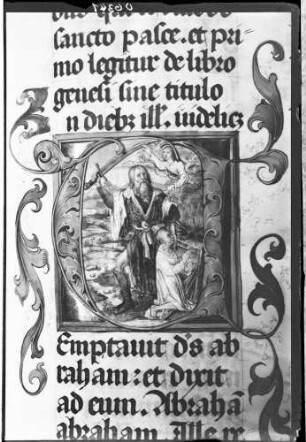 sancto pasce. et pri
mo legitur de libro
genesi sine titulo
n dieb₉ ill'. uidelic₃
Emptauit d's ab
raham: et dixit
ad eum. Abrahā
abraham. Ille re